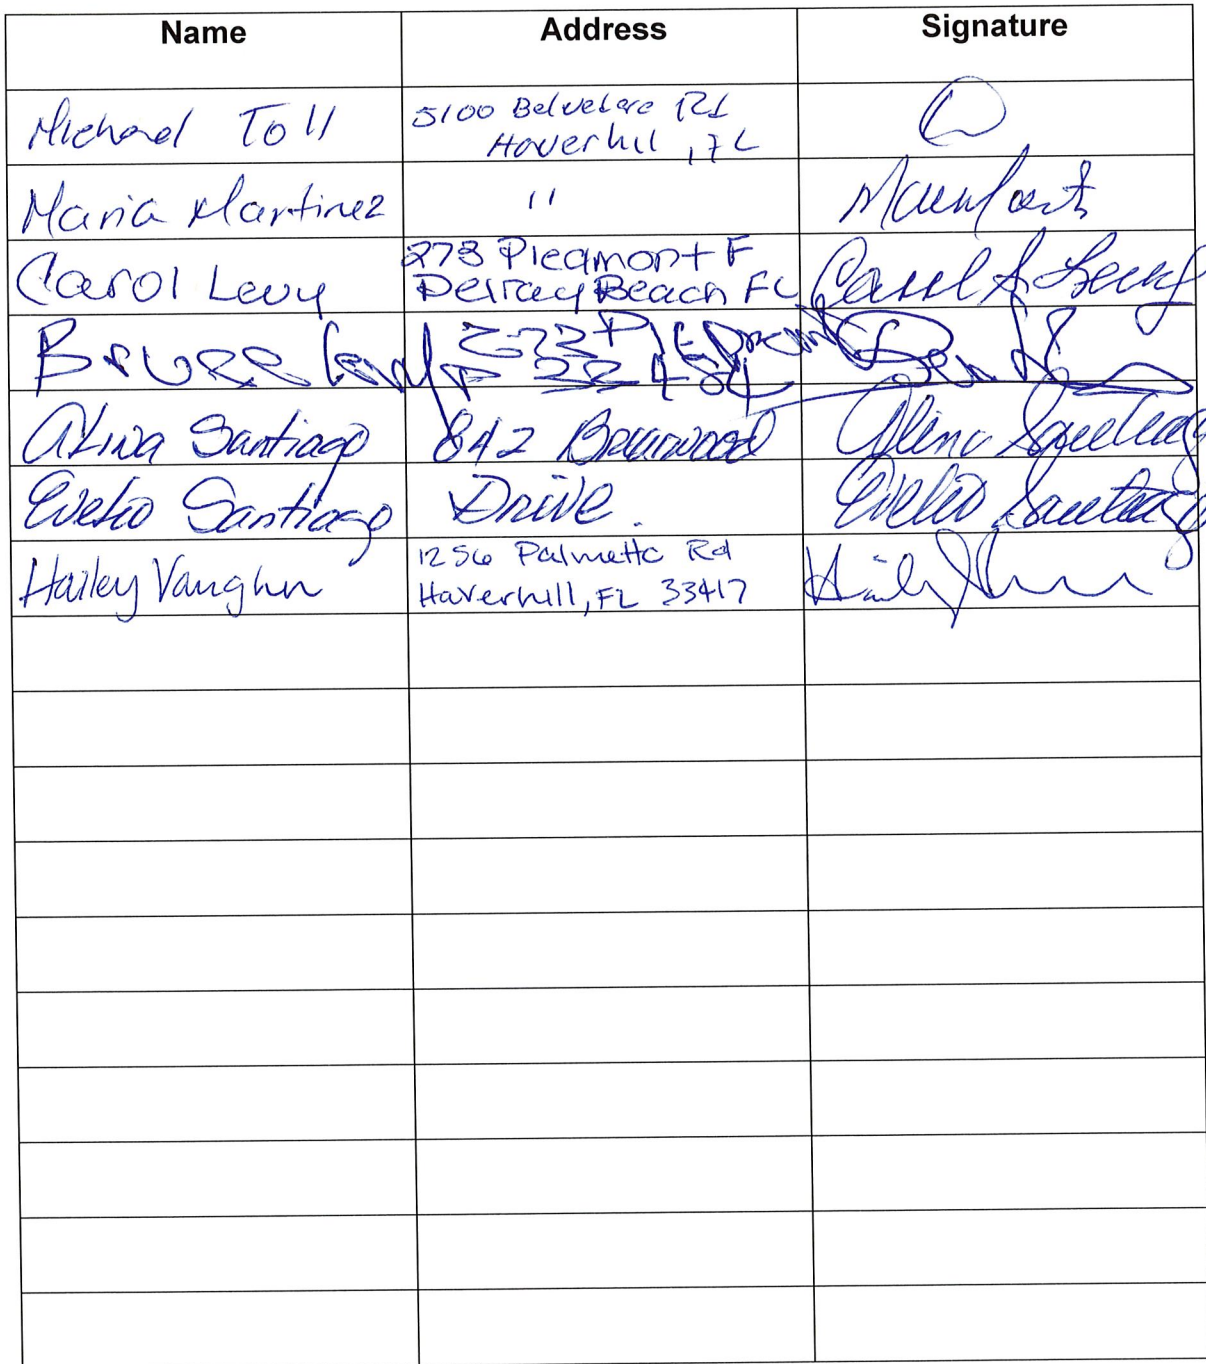 Name Address Signature
Michael Toll 5100 Belvedere Rd
Haverhill, FL
Maria Martinez 11
Carol Levy 273 Piedmont F
Delray Beach FL Carol A Levy
Bruce Levy 273 Piedmont
33484
Alina Santiago 842 Briarwood Alina Santiago
Evelio Santiago Drive. Evelio Santiago
Hailey Vaughn 1256 Palmetto Rd
Haverhill, FL 33417